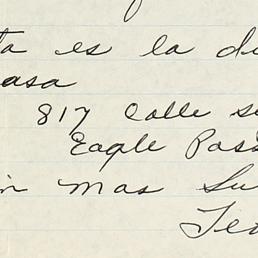 ta es la di
asa
817 Calle s
Eagle Pass
in mas Su
Te